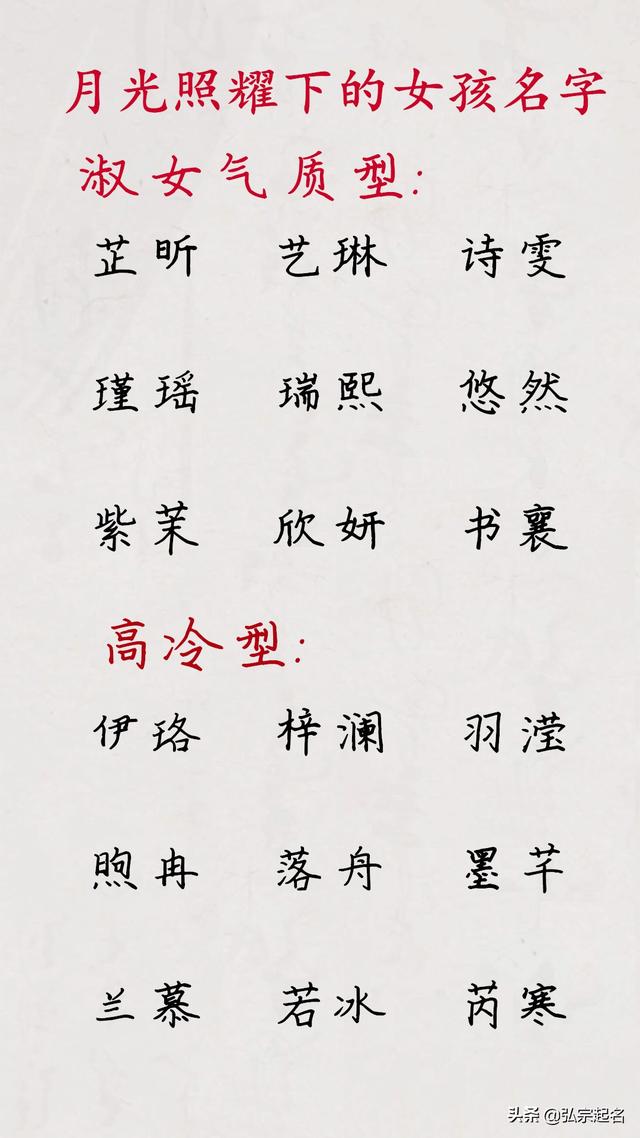 月光照耀下的女孩名字
淑女气质型:
芷昕 艺琳 诗雯
瑾瑶 瑞熙 悠然
紫茉 欣妍 书襄
高冷型:
伊珞 梓澜 羽滢
煦冉 落舟 墨芊
兰慕 若冰 芮寒
头条 @弘宗起名